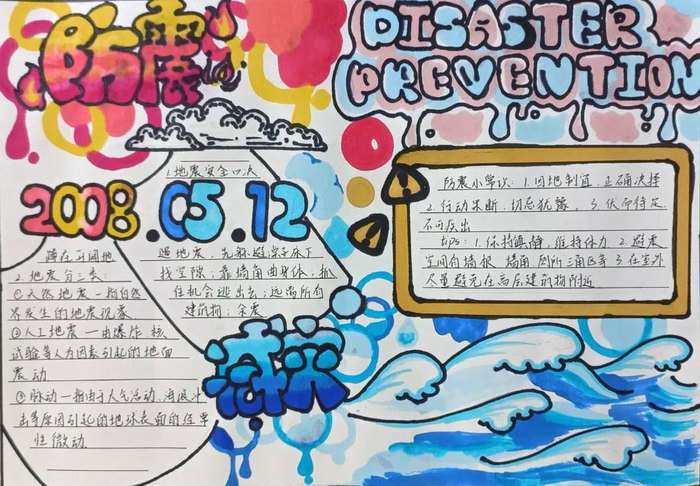 防震
DISASTER
PREVENTION
1.地震安全口决
2008.05.12
遇地震,先躲避,桌子床下
找空隙;靠墙角曲身体,抓
住机会逃出去;远离所有
建筑物;余震
蹲在开阔地
2.地震分三类:
①天然地震—指自然
界发生的地震现象
②人工地震—由爆炸、核
试验等人为因素引起的地面
震动
③脉动—指由于大气活动、海浪冲
击等原因引起的地球表面的经常
性微动
减灾
防震小常识:1.因地制宜,正确决择
2.行动果断,切忌犹豫,3.伏而待定
不可疾出
tips:1.保持镇静,维持体力 2.避震
空间内墙根、墙角、厕所三角区等 3.在室外
尽量避免在高层建筑物附近